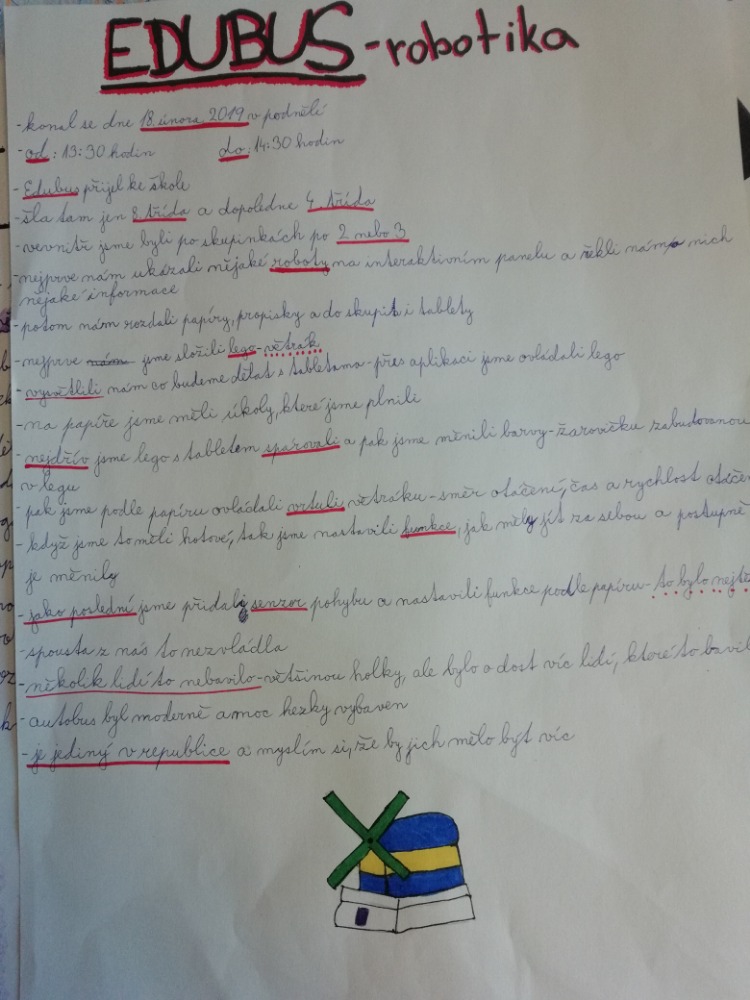 EDUBUS - robotika
- konal se dne 18. února 2019 v podnělí
- od: 13:30 hodin do: 14:30 hodin
- Edubus přijel ke škole
- šla tam jen 8. třída a dopoledne 4. třída
- vevnitř jsme byli po skupinkách po 2 nebo 3
- nejprve nám ukázali nějaké roboty na interaktivním panelu a řekli nám o nich
nějaké informace
- potom nám rozdali papíry, propisky a do skupin i tablety
- nejprve jsme složili lego - větrák
- vysvětlili nám co budeme dělat s tabletama - přes aplikaci jsme ovládali lego
- na papíře jsme měli úkoly, které jsme plnili
- nejdřív jsme lego s tabletem spárovali a pak jsme měnili barvy - žárovičku zabudovanou
v legu
- pak jsme podle papíru ovládali vrtuli větráku - směr otáčení, čas a rychlost
- když jsme to měli hotové, tak jsme nastavili funkce, jak měly jít za sebou a postupně
je měnily
- jako poslední jsme přidali senzor pohybu a nastavili funkce podle papíru - to bylo
- spousta z nás to nezvládla
- několik lidí to nebavilo - většinou holky, ale bylo o dost víc lidí, které to
- autobus byl moderně a moc hezky vybaven
- je jediný v republice a myslím si, že by jich mělo být víc